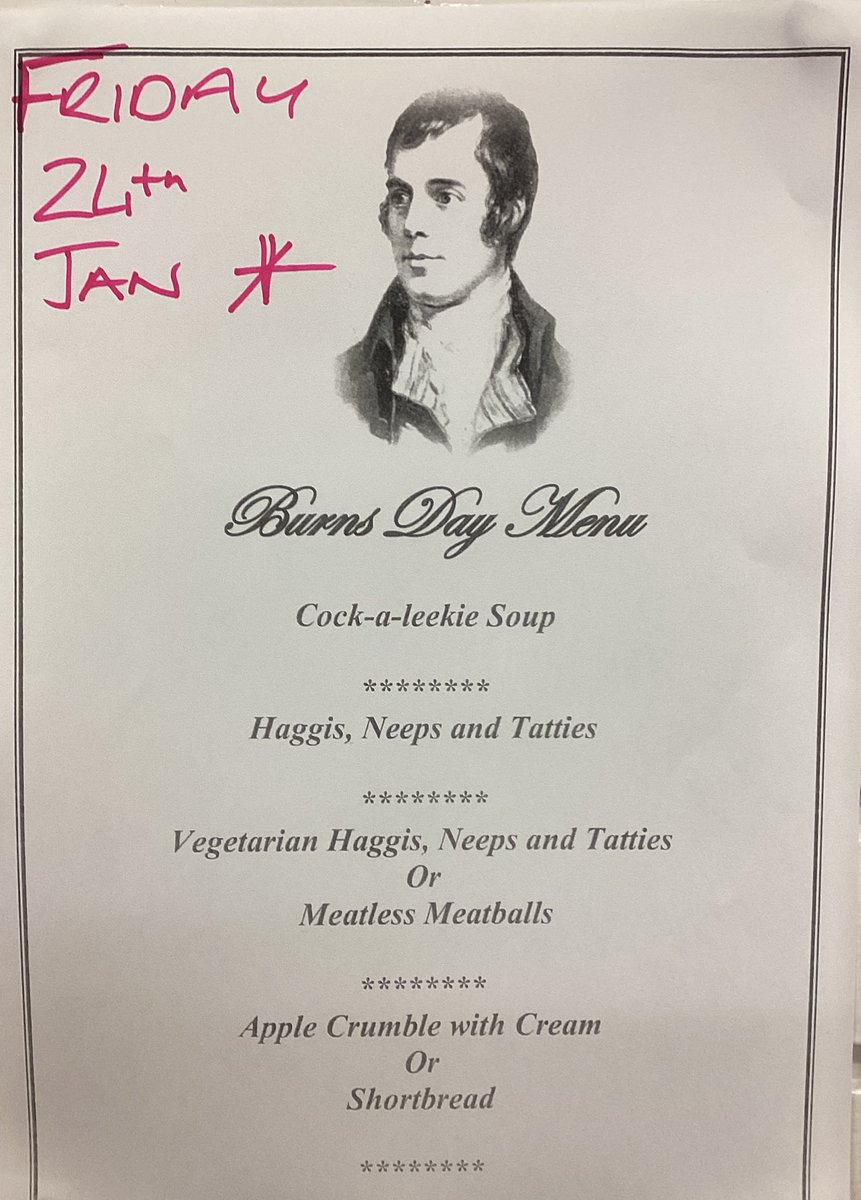 FRIDAY
24th
JAN *
Burns Day Menu
Cock-a-leekie Soup
********
Haggis, Neeps and Tatties
********
Vegetarian Haggis, Neeps and Tatties
Or
Meatless Meatballs
********
Apple Crumble with Cream
Or
Shortbread
********